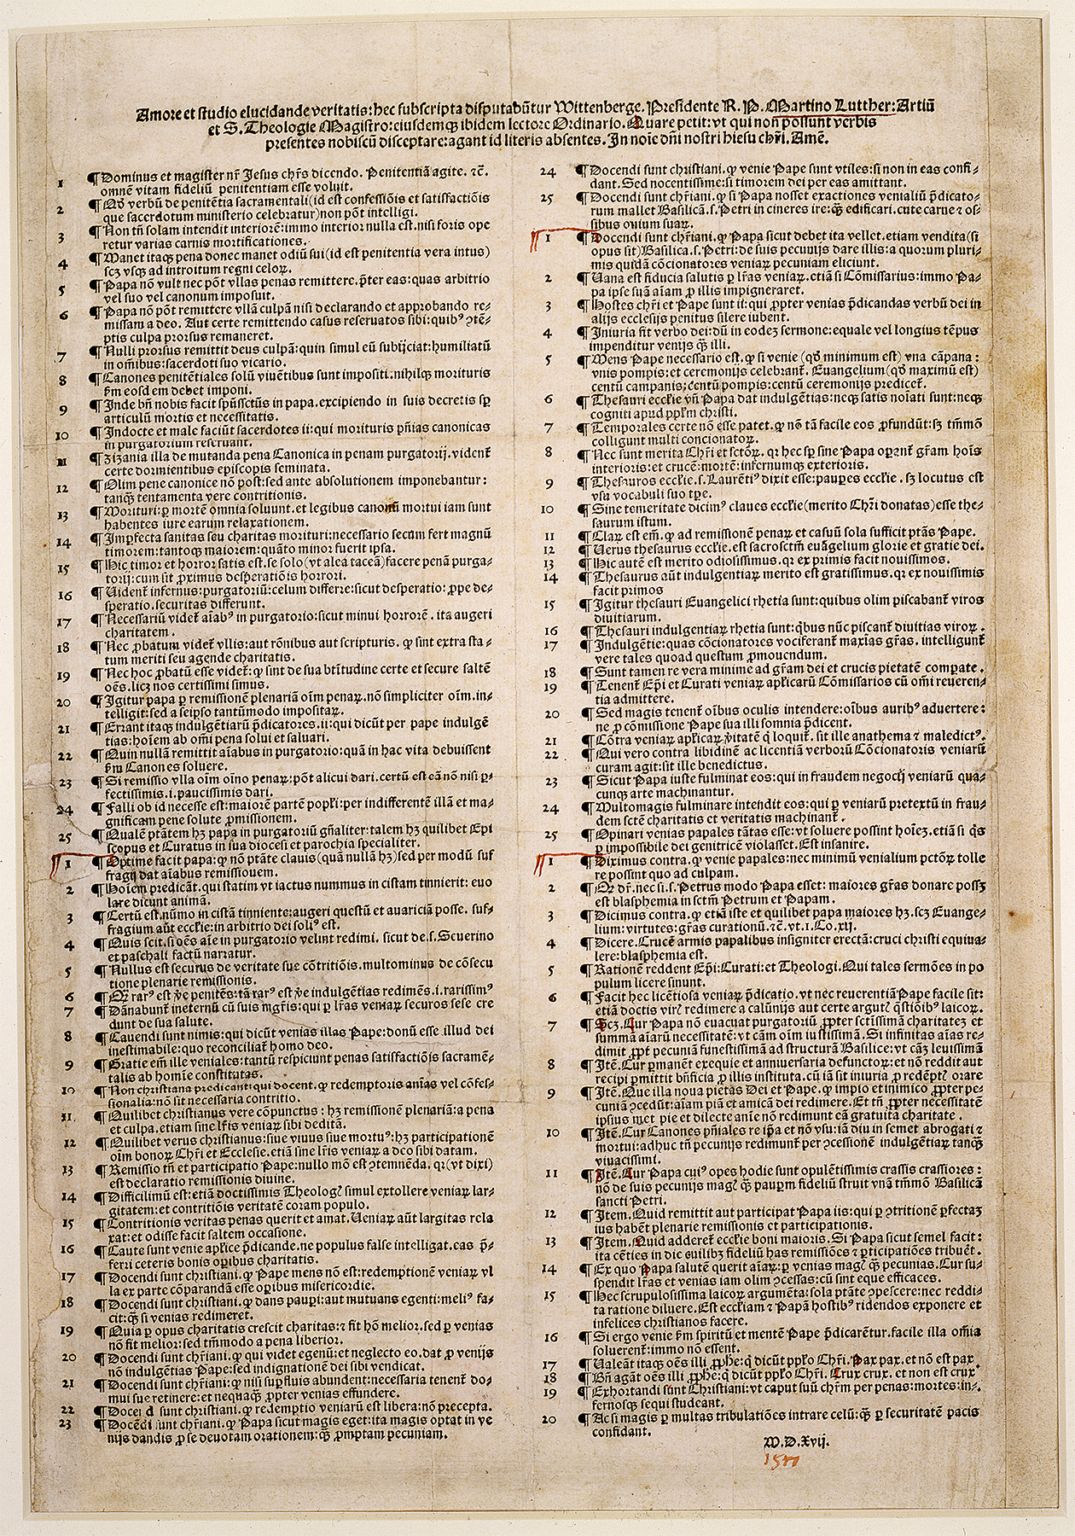 Amore et studio elucidande veritatis: hec subscripta disputabūtur Wittenberge. Presidente R. P. Martino Lutther: Artiū
et S. Theologie Magistro: eiusdemq; ibidem lectore Ordinario. Quare petit: vt qui non possunt verbis
presentes nobiscū disceptare: agant id literis absentes. In noīe dn̄i nostri hiesu chr̄i. Amē.
1 ¶ Dominus et magister nr̄ Jesus chr̄s dicendo. Penitentiā agite. ⁊c̄.
omnē vitam fideliū penitentiam esse voluit.
2 ¶ Qd̄ verbū de penitētia sacramentali (id est confessiōis et satisfactiōis
que sacerdotum ministerio celebratur) non pōt intelligi.
3 ¶ Non tn̄ solam intendit interiorē: immo interior nulla est. nisi foris ope
retur varias carnis mortificationes.
4 ¶ Manet itaq; pena donec manet odiū sui (id est penitentia vera intus)
scz vsq; ad introitum regni celoꝝ.
5 ¶ Papa nō vult nec pōt vllas penas remittere. p̄ter eas: quas arbitrio
vel suo vel canonum imposuit.
6 ¶ Papa nō pōt remittere vllā culpā nisi declarando et approbando re-
missam a deo. Aut certe remittendo casus reseruatos sibi: quibꝰ ꝯtē-
ptis culpa prorsus remaneret.
7 ¶ Nulli prorsus remittit deus culpā: quin simul eū subijciat: humiliatū
in om̄ibus: sacerdoti suo vicario.
8 ¶ Canones penitētiales solū viuētibus sunt impositi. nihilq; morituris
fm̄ eosdem debet imponi.
9 ¶ Inde bn̄ nobis facit spūssctūs in papa. excipiendo in suis decretis sp̄
articulū mortis et necessitatis.
10 ¶ Indocte et male faciūt sacerdotes ii: qui morituris pn̄ias canonicas
in purgatorium reseruant.
11 ¶ Zizania illa de mutanda pena Canonica in penam purgatorij. vident̄
certe dormientibus episcopis seminata.
12 ¶ Olim pene canonice nō post: sed ante absolutionem imponebantur:
tanq; tentamenta vere contritionis.
13 ¶ Morituri: ꝑ mortē omnia soluunt. et legibus canonū mortui iam sunt
habentes iure earum relaxationem.
14 ¶ Imꝑfecta sanitas seu charitas morituri: necessario secum fert magnū
timorem: tantoq; maiorem: quāto minor fuerit ipsa.
15 ¶ Hic timor et horror satis est. se solo (vt alia taceā) facere penā purga-
torij: cum sit ꝓximus desperatiōis horrori.
16 ¶ Vident̄ infernus: purgatoriū: celum differre: sicut desperatio: ꝓpe de-
speratio. securitas differunt.
17 ¶ Necessariū videt̄ aīabꝰ in purgatorio: sicut minui horrorē. ita augeri
charitatem.
18 ¶ Nec ꝓbatum videt̄ vllis: aut rōnibus aut scripturis. ꝙ sint extra sta-
tum meriti seu agende charitatis.
19 ¶ Nec hoc ꝓbatū esse videt̄: ꝙ sint de sua bt̄itudine certe et secure saltē
oēs. licz nos certissimi simus.
20 ¶ Igitur papa ꝑ remissionē plenariā oīm penaꝝ. nō simpliciter oīm. in-
telligit: sed a seipso tantūmodo impositaꝝ.
21 ¶ Errant itaq; indulgētiarū p̄dicatores. ii: qui dicūt per pape indulgē
tias: hoīem ab om̄i pena solui et saluari.
22 ¶ Quin nullā remittit aīabus in purgatorio: quā in hac vita debuissent
fm̄ Canones soluere.
23 ¶ Si remissio vlla oīm oīno penaꝝ: pōt alicui dari. certū est eā nō nisi ꝑ-
fectissimis. i. paucissimis dari.
24 ¶ Falli ob id necesse est: maiorē partē popl̄i: per indifferentē illā et ma-
gnificam pene solute ꝓmissionem.
25 ¶ Qualē ptātem hz papa in purgatoriū gn̄aliter: talem hz quilibet Epi
scopus et Curatus in sua diocesi et parochia specialiter.
1 ¶ Optime facit papa: ꝙ nō ptāte clauis (quā nullā hz) sed per modū suf
fragij dat aīabus remissionem.
2 ¶ Hoīem predicāt. qui statim vt iactus nummus in cistam tinnierit: euo
lare dicunt animā.
3 ¶ Certū est. nūmo in cistā tinniente: augeri questū et auariciā posse. suf-
fragium aūt eccłie: in arbitrio dei soliꝰ est.
4 ¶ Quis scit. si oēs aīe in purgatorio velint redimi. sicut de. s. Seuerino
et paschali factū narratur.
5 ¶ Nullus est securus de veritate sue cōtritiōis. multominus de cōsecu
tione plenarie remissionis.
6 ¶ Qz̄ rarꝰ est ꝟe penitēs: tā rarꝰ est ꝟe indulgētias redimēs. i. rarissimꝰ
7 ¶ Dānabunt̄ ineternū cū suis mgr̄is: qui ꝑ lr̄as veniaꝝ securos sese cre
dunt de sua salute.
8 ¶ Cauendi sunt nimis: qui dicūt venias illas Pape: donū esse illud dei
inestimabile: quo reconciliat̄ homo deo.
9 ¶ Gratie em̄ ille veniales: tantū respiciunt penas satisfactiōis sacramē-
talis ab homīe constitutas.
10 ¶ Non christiana predicant: qui docent. ꝙ redemptoris animas vel cōfes-
sionalia: nō sit necessaria contritio.
11. ¶ Quilibet christianus vere cōpunctus: hz remissionē plenariā: a pena
et culpa. etiam sine lr̄is veniaꝝ sibi debitā.
12 ¶ Quilibet verus christianus: siue viuus siue mortuꝰ: hz participationē
oīm bonoꝝ Chr̄i et Ecclesie. etiā sine lr̄is veniaꝝ a deo sibi datam.
13 ¶ Remissio tn̄ et participatio Pape: nullo mō est ꝯtemnēda. qꝛ (vt dixi)
est declaratio remissionis diuine.
14 ¶ Difficilimū est: etiā doctissimis Theologꝭ simul extollere veniaꝝ lar-
gitatem: et contritiōis veritatē coram populo.
15 ¶ Contritionis veritas penas querit et amat. Ueniaꝝ aūt largitas rela
xat: et odisse facit saltem occasione.
16 ¶ Caute sunt venie apl̄ice p̄dicande. ne populus false intelligat. eas p̄-
ferri ceteris bonis oꝑibus charitatis.
17 ¶ Docendi sunt christiani. ꝙ Pape mens nō est: redemptionē veniaꝝ vl
la ex parte cōparandā esse oꝑibus misericordie.
18 ¶ Docendi sunt christiani. ꝙ dans pauꝑi: aut mutuans egenti: meliꝰ fa-
cit: ꝙ̄ si venias redimeret.
19 ¶ Quia ꝑ opus charitatis crescit charitas: ⁊ fit hō melior. sed ꝑ venias
nō fit melior: sed tm̄modo a pena liberior.
20 ¶ Docendi sunt chr̄iani. ꝙ qui videt egenū: et neglecto eo. dat ꝓ venijs
nō indulgētias Pape: sed indignationē dei sibi vendicat.
21 ¶ Docendi sunt chr̄iani: ꝙ nisi suꝑfluis abundent: necessaria tenent̄ do-
mui sue retinere: et nequaq̄ ꝓpter venias effundere.
22 ¶ Docendi sunt chr̄iani. ꝙ redemptio veniarū est libera: nō precepta.
23 ¶ Docēdi sunt chr̄iani. ꝙ Papa sicut magis eget: ita magis optat in ve
nijs dandis ꝓ se deuotam orationem: ꝙ̄ ꝓmptam pecuniam.
24 ¶ Docendi sunt christiani. ꝙ venie Pape sunt vtiles: si non in eas confi-
dant. Sed nocentissime: si timorem dei per eas amittant.
25 ¶ Docendi sunt chr̄iani. ꝙ si Papa nosset exactiones venialiū p̄dicato-
rum mallet Basilicā. s. Petri in cineres ire: ꝙ̄ edificari. cute carne ⁊ os-
sibus ouium suaꝝ.
1 ¶ Docendi sunt chr̄iani. ꝙ Papa sicut debet ita vellet. etiam vendita (si
opus sit) Basilica. s. Petri: de suis pecunijs dare illis: a quorum pluri-
mis quidā cōcionatores veniaꝝ pecuniam eliciunt.
2 ¶ Uana est fiducia salutis ꝑ lr̄as veniaꝝ. etiā si Cōmissarius: immo Pa-
pa ipse suā aīam ꝓ illis impigneraret.
3 ¶ Hostes chr̄i et Pape sunt ii: qui ꝓpter venias p̄dicandas verbū dei in
alijs ecclesijs penitus silere iubent.
4 ¶ Iniuria fit verbo dei: dū in eodez sermone: equale vel longius tēpus
impenditur venijs ꝙ̄ illi.
5 ¶ Mens Pape necessario est. ꝙ si venie (qd̄ minimum est) vna cāpana:
vnis pompis: et ceremonijs celebrant̄. Euangelium (qd̄ maximū est)
centū campanis: centū pompis: centū ceremonijs predicet̄.
6 ¶ Thesauri eccłie vn̄ Papa dat indulgētias: neq; satis noīati sunt: neq;
cogniti apud ppłm christi.
7 ¶ Temporales certe nō esse patet. ꝙ nō tā facile eos ꝓfundūt: sz tm̄mō
colligunt multi concionatoꝝ.
8 ¶ Nec sunt merita Chr̄i et sctōꝝ. qꝛ hec sꝑ sine Papa oꝑant̄ gr̄am hoīs
interioris: et crucē: mortē: infernumq; exterioris.
9 ¶ Thesauros eccłie. s. Laurētiꝰ dixit esse: pauꝑes eccłie. sz locutus est
vsu vocabuli suo tꝑe.
10 ¶ Sine temeritate dicimꝰ claues eccłie (merito Chr̄i donatas) esse the-
saurum istum.
11 ¶ Claꝝ est em̄. ꝙ ad remissionē penaꝝ et casuū sola sufficit ptās Pape.
12 ¶ Uerus thesaurus eccłie. est sacrosctm̄ euāgelium glorie et gratie dei.
13 ¶ Hic autē est merito odiosissimus. qꝛ ex primis facit nouissimos.
14 ¶ Thesaurus aūt indulgentiaꝝ merito est gratissimus. qꝛ ex nouissimis
facit primos
15 ¶ Igitur thesauri Euangelici rhetia sunt: quibus olim piscabant̄ viros
diuitiarum.
16 ¶ Thesauri indulgentiaꝝ rhetia sunt: qbus nūc piscant̄ diuitias viroꝝ.
17 ¶ Indulgētie: quas cōcionatores vociferant̄ maxīas gr̄as. intelligunt̄
vere tales quoad questum ꝓmouendum.
18 ¶ Sunt tamen re vera minime ad gr̄am dei et crucis pietatē compate.
19 ¶ Tenent̄ Epī et Curati veniaꝝ apl̄icarū Cōmissarios cū om̄i reueren-
tia admittere.
20 ¶ Sed magis tenent̄ oībus oculis intendere: oībus auribꝰ aduertere:
ne ꝓ cōmissione Pape sua illi somnia p̄dicent.
21 ¶ Cōtra veniaꝝ apl̄icaꝝ ꝟitatē q̄ loquit̄. sit ille anathema ⁊ maledictꝰ.
22 ¶ Qui vero contra libidinē ac licentiā verborū Cōcionatoris veniarū
curam agit: sit ille benedictus.
23 ¶ Sicut Papa iuste fulminat eos: qui in fraudem negocij veniarū qua-
cunq; arte machinantur.
24 ¶ Multomagis fulminare intendit eos: qui ꝑ veniarū pretextū in frau-
dem sctē charitatis et veritatis machinant̄.
25 ¶ Opinari venias papales tātas esse: vt soluere possint hoīez. etiā si qs̄
ꝑ impossibile dei genitricē violasset. Est insanire.
1 ¶ Diximus contra. ꝙ venie papales: nec minimū venialium pctōꝝ tolle
re possint quo ad culpam.
2 ¶ Qd̄ dr̄. nec si. s. Petrus modo Papa esset: maiores gr̄as donare possz
est blasphemia in sctm̄ Petrum et Papam.
3 ¶ Dicimus contra. ꝙ etiā iste et quilibet papa maiores hz. scz Euange-
lium: virtutes: gr̄as curationū. ⁊c̄. vt. 1. Co. xij.
4 ¶ Dicere. Crucē armis papalibus insigniter erectā: cruci christi equiua-
lere: blasphemia est.
5 ¶ Rationē reddent Epī: Curati: et Theologi. Qui tales sermōes in po
pulum licere sinunt.
6 ¶ Facit hec licētiosa veniaꝝ p̄dicatio. vt nec reuerentiā Pape facile sit:
etiā doctis virꝭ redimere a calūnijs aut certe argutꝭ qstiōibꝰ laicoꝝ.
7 ¶ Scz. Cur Papa nō euacuat purgatoriū ꝓpter sctissimā charitatez et
summā aīarū necessitatē: vt cām oīm iustissimā. Si infinitas aīas re-
dimit ꝓpt̄ pecuniā funestissimā ad structurā Basilice: vt cāz leuissimā
8 ¶ Itē. Cur ꝑmanēt exequie et anniuersaria defunctoꝝ: et nō reddit aut
recipi ꝑmittit bn̄ficia ꝓ illis instituta. cū iā sit iniuria ꝓ redēptꝭ orare
9 ¶ Itē. Que illa noua pietas Dei et Pape. ꝙ impio et inimico ꝓpter pe-
cuniā ꝯcedūt: aīam piā et amicā dei redimere. Et tn̄ ꝓpter necessitatē
ipsius met pie et dilecte aīe nō redimunt eā gratuita charitate.
10 ¶ Itē. Cur Canones pn̄iales re ip̄a et nō vsu: iā diu in semet abrogati ⁊
mortui: adhuc tn̄ pecunijs redimunt̄ per ꝯcessionē indulgētiaꝝ tanq;
viuacissimi.
11 ¶ Itē. Cur Papa cuiꝰ opes hodie sunt opulētissimis crassis crassiores:
nō de suis pecunijs magꝭ ꝙ̄ pauꝑm fideliū struit vnā tm̄mō Basilicā
sancti Petri.
12 ¶ Item. Quid remittit aut participat Papa iis: qui ꝑ ꝯtritionē ꝑfectaz
ius habēt plenarie remissionis et participationis.
13 ¶ Item. Quid adderet̄ eccłie boni maioris. Si Papa sicut semel facit:
ita cēties in die cuilibz fideliū has remissiōes ⁊ ꝑticipatiōes tribuēt.
14 ¶ Ex quo Papa salutē querit aīaꝝ: ꝑ venias magꝭ ꝙ̄ pecunias. Cur su-
spendit lr̄as et venias iam olim ꝯcessas: cū sint eque efficaces.
15 ¶ Hec scrupulosissima laicoꝝ argumēta: sola ptāte ꝯpescere: nec reddi-
ta ratione diluere. Est eccłiam ⁊ Papā hostibꝰ ridendos exponere et
infelices christianos facere.
16 ¶ Si ergo venie fm̄ spiritū et mentē Pape p̄dicarētur. facile illa om̄ia
soluerent̄: immo nō essent.
17 ¶ Ualeāt itaq; oēs illi ꝓphe: q̄ dicūt pplo Chr̄i. Pax pax. et nō est pax
18 ¶ Bn̄ agāt oēs illi ꝓphe: q̄ dicūt pplo Chr̄i. Crux crux. et non est crux
19 ¶ Exhortandi sunt Christiani: vt caput suū chr̄m per penas: mortes: in-
fernosq; sequi studeant.
20 ¶ Ac si magis ꝑ multas tribulatiōes intrare celū: ꝙ̄ ꝑ securitatē pacis
confidant.
M.D.Xvij.
1517